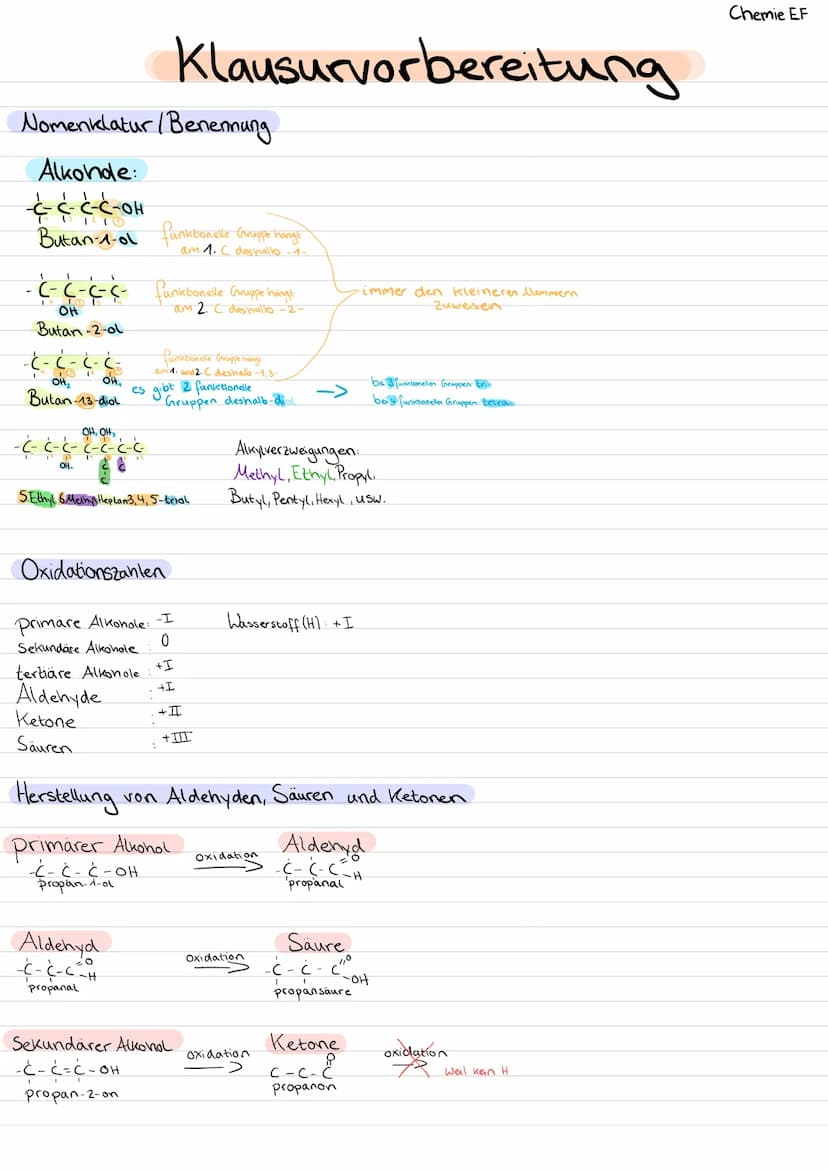 Chemie EF
Klausurvorbereitung
Nomenklatur/Benennung
Alkohole:
-C-C-C-C-OH
Butan-1-ol
funktionelle Gruppe hängt
am 1. C deshalb -1-
-C-C-C-C-
OH
Butan-2-ol
funktionelle Gruppe hängt
am 2. C deshalb -2-
immer den kleineren Nummern
zuweisen
-C-C-C-C-
OH, OH,
Butan-1,3-diol
funktionelle Gruppe hängt
am 1. und 2. C deshalb -1,3-
es gibt 2 funktionelle
Gruppen deshalb -diol
bei 3 funktionellen Gruppen tri-
bei 4 funktionellen Gruppen tetra-
OH, OH,
-C-C-C-C-C-C-C-
OH,
C C
C
5 Ethyl 6 Methyl Heptan 3,4,5-triol
Alkylverzweigungen:
Methyl, Ethyl, Propyl,
Butyl, Pentyl, Hexyl, usw.
Oxidationszahlen
primäre Alkohole: -I
Wasserstoff (H): +I
Sekundäre Alkohole : 0
tertiäre Alkohole : +I
Aldehyde : +I
Ketone : +II
Säuren : +III
Herstellung von Aldehyden, Säuren und Ketonen
primärer Alkohol
-C-C-C-OH
propan-1-ol
oxidation
Aldehyd
-C-C-C=O
-H
propanal
Aldehyd
-C-C-C=O
-H
propanal
oxidation
Säure
-C-C-C=O
-OH
propansäure
Sekundärer Alkohol
-C-C=C-OH
propan-2-on
oxidation
Ketone
O
C-C-C
propanon
oxidation
weil kein H